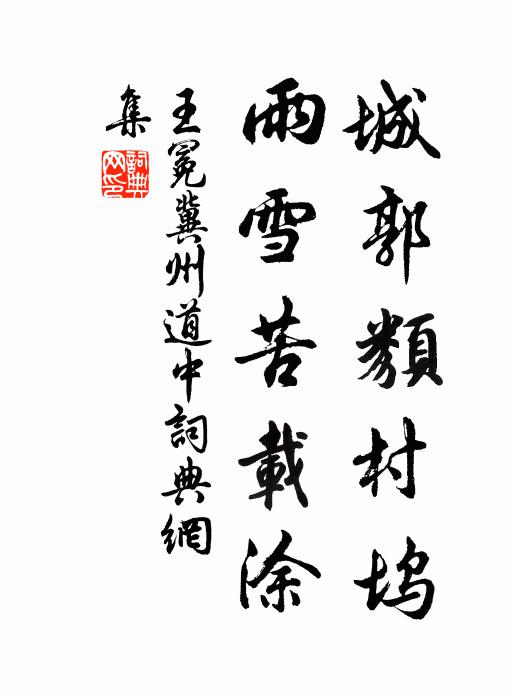 城郭類村塢
雨雪苦載涂
王冕冀州道中詞典網
集
詞典网印